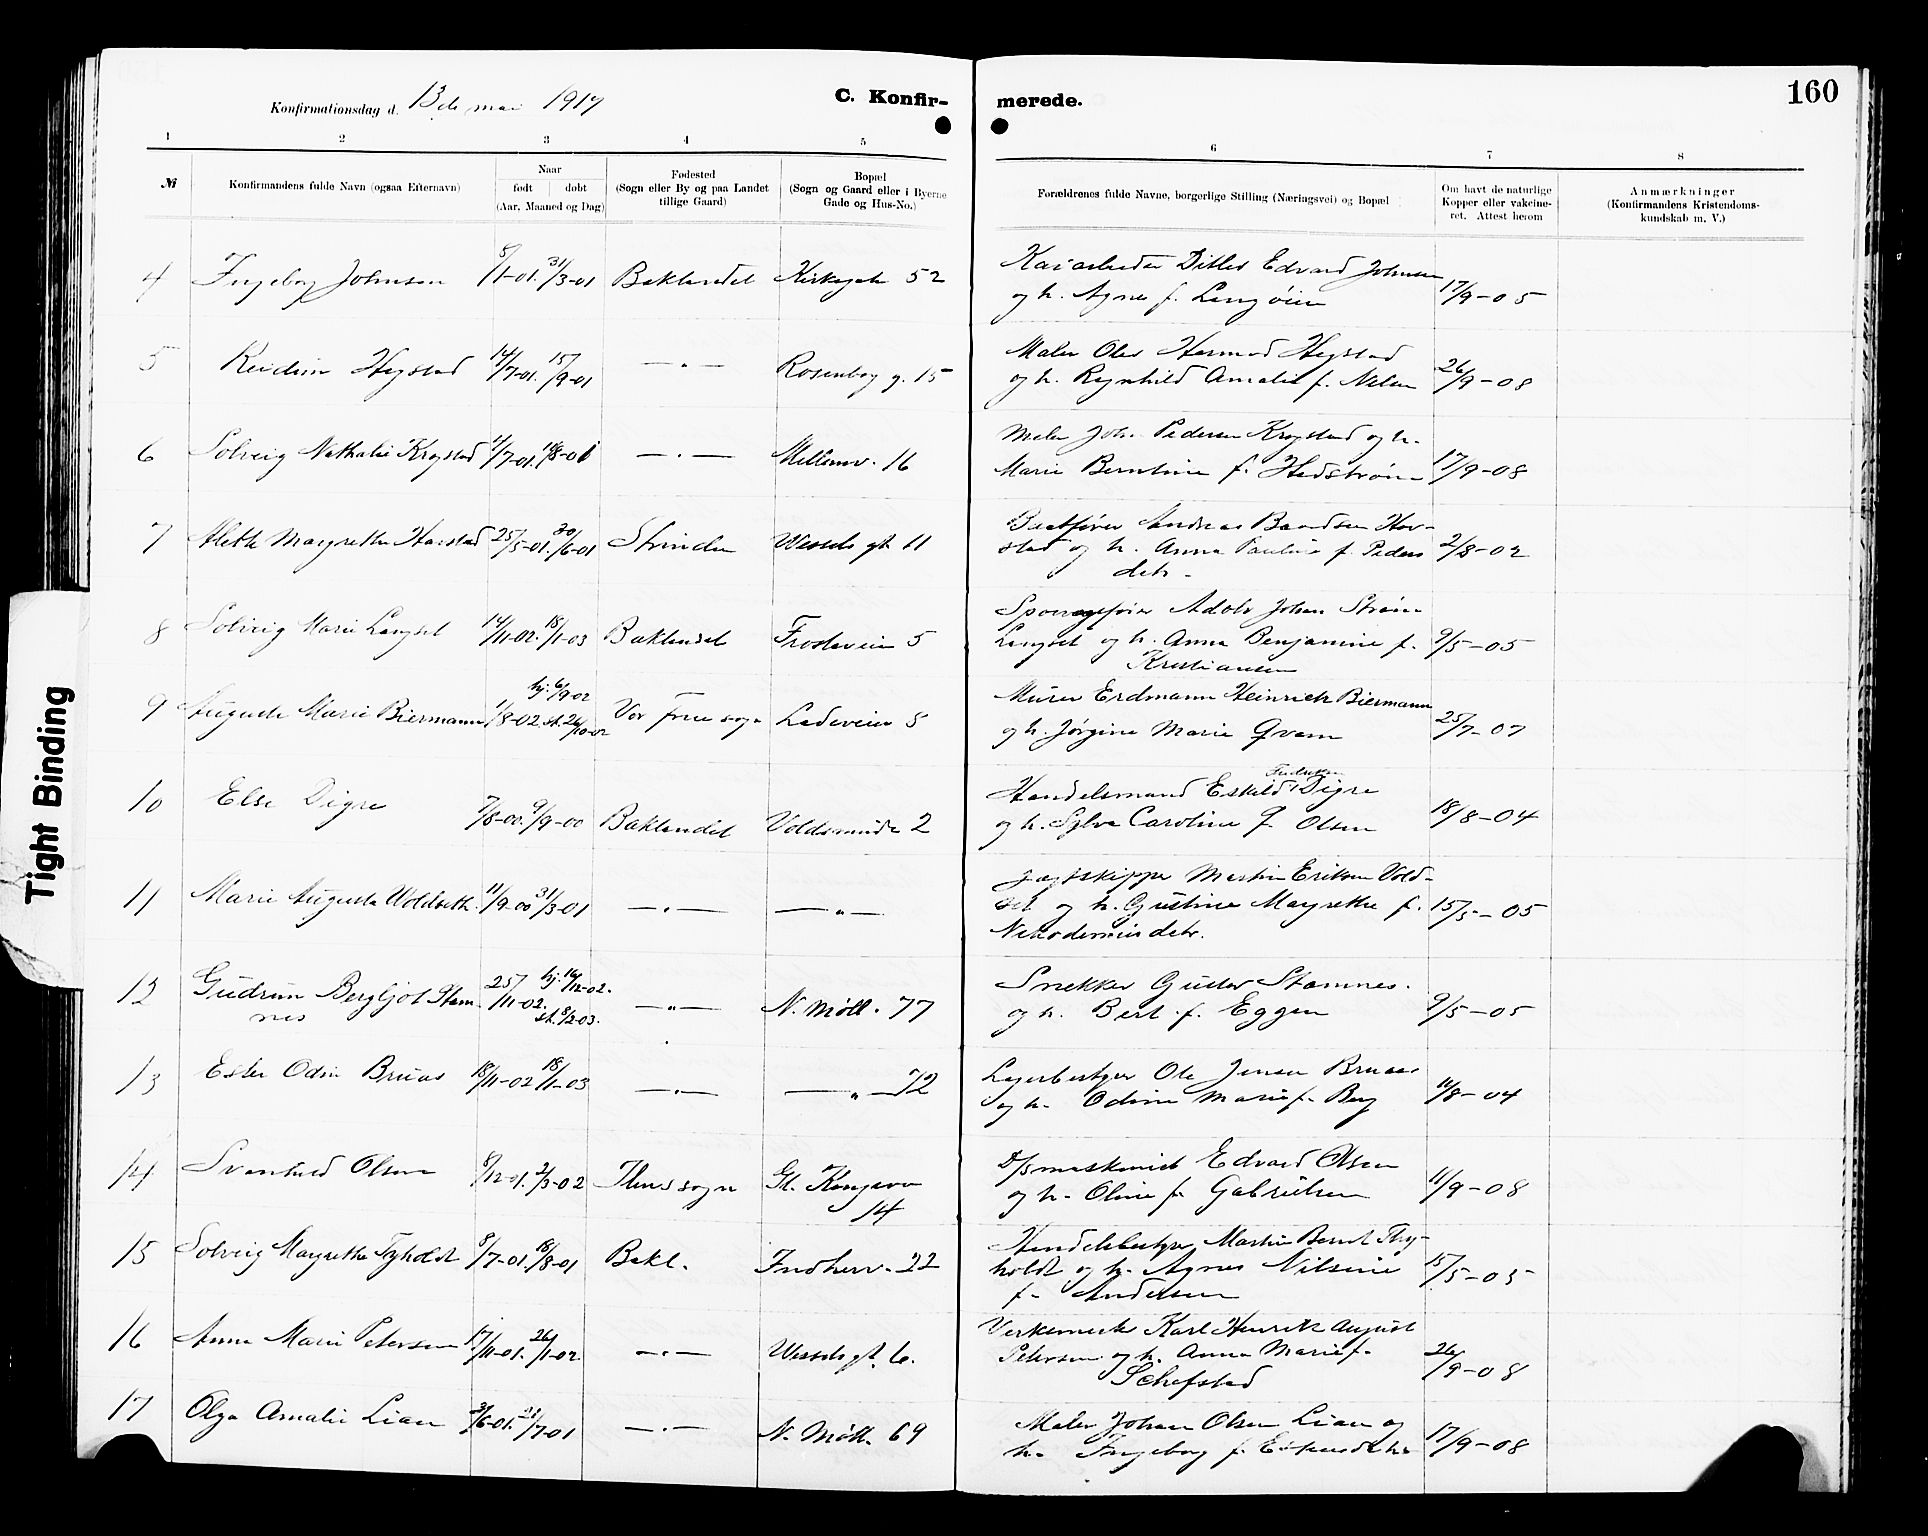 160
Konfirmationsdag d. 13de mai 1917
C. Konfir- merede.
1 2 3 4 5 6 7 8
№
Konfirmandens fulde Navn (ogsaa Efternavn)
Naar
født døbt
(Aar, Maaned og Dag)
Fødested
(Sogn eller By og paa Landet
tillige Gaard)
Bopæl
(Sogn og Gaard eller i Byerne
Gade og Hus-No.)
Forældrenes fulde Navne, borgerlige Stilling (Næringsvei) og Bopæl
Om havt de naturlige
Kopper eller vakcine-
ret. Attest herom
Anmærkninger
(Konfirmandens Kristendoms-
kundskab m. V.)
4 Ingeborg Johnsen 5/1-01. 31/3-01 Baklandet Kirkegaten 52
Ditlev Edvard Johnsen
og h. Agnes f. Langøien 17/9-05
5 Reidun Hegstad 14/7-01. 15/9-01 — " — Rosenborg g. 15
Maler Olav Hermod Hegstad
og h. Ragnhild Amalie f. Nilsen 26/9-08
6 Solveig Nathalie Krogstad 11/7-01. 18/8-01 — " — Mellemv. 16
Maler Joh. Pedersen Krogstad og h.
Marie Berntine f. Hedstrøm 17/9-08
7 Aleth Margrethe Harstad 25/5-01. 30/6-01 Strinden Wessels gt 11
Baatfører Andreas Har-
stad og h. Anna Pauline f. Peders
datr. 2/8-02
8 Solveig Marie Langset 14/11-02. 18/1-03 Baklandet Frostaveien 5
Sporvogsfører Adolv Johan Strøm
Langset og h. Anna Benjamine f.
Kristiansen 9/5-05
9 Augusta Marie Biermann 1/8-02. hj. 6/9-02 st. 26/10-02 Vor frue sogn Ladeveien 8
Murer Erdmann Heinrich Biermann
og h. Jørgine Marie Qvam 25/7-07
10 Else Digre 7/8-00. 9/9-00 Baklandet Voldsminde 2
Handelsmand Eskild Digre
og h. Sylva Caroline f. Olsen 18/8-04
11 Marie Augusta Woldseth 11/9-00 31/3-01 — " — — " —
Jagtskipper Martin Eriksen Vold-
set og h. Gustine Margrethe f.
Nikodemusdatr. 15/5-05
12 Gudrun Bergljot Stam-
nes 25/11-02. hj. 14/12-02. st. 8/2-03. — " — N. Møll. 77
Snekker Gustav Stamnes.
og h. Berit f. Eggen 9/5-05
13 Ester Odin Bruaas 18/11-02 18/1-03 — " — — " — 72
Lagerbestyrer Ole Jensen Bruaas
og h. Odine Marie f. Berg 16/8-04
14 Svanhild Olsen 8/12-01. 2/3-02 Ilens sogn Gl. Kongevei
14
D/S maskinist Edvard Olsen
og h. Oline f. Gabrielsen 11/9-08
15 Solveig Margrethe Tyholdt 8/7-01. 18/8-01 Bakl. Indherv. 22
Handelsbestyrer Martin Bernt Thy-
holdt og h. Agnes Nilsine
f. Andersen 15/5-05
16 Anna Marie Petersen 17/11-01. 26/1-02. — " — Wessels gt. 6.
Verksmester Karl Henrik August
Petersen og h. Anna Marie f.
Schefstad 26/9-08
17 Olga Amalie Lian 3/6-01. 21/7-01 — " — N. Møll. 69
Maler Johan Olsen Lian og
h. Ingeborg f. 17/9-08
Tight Binding